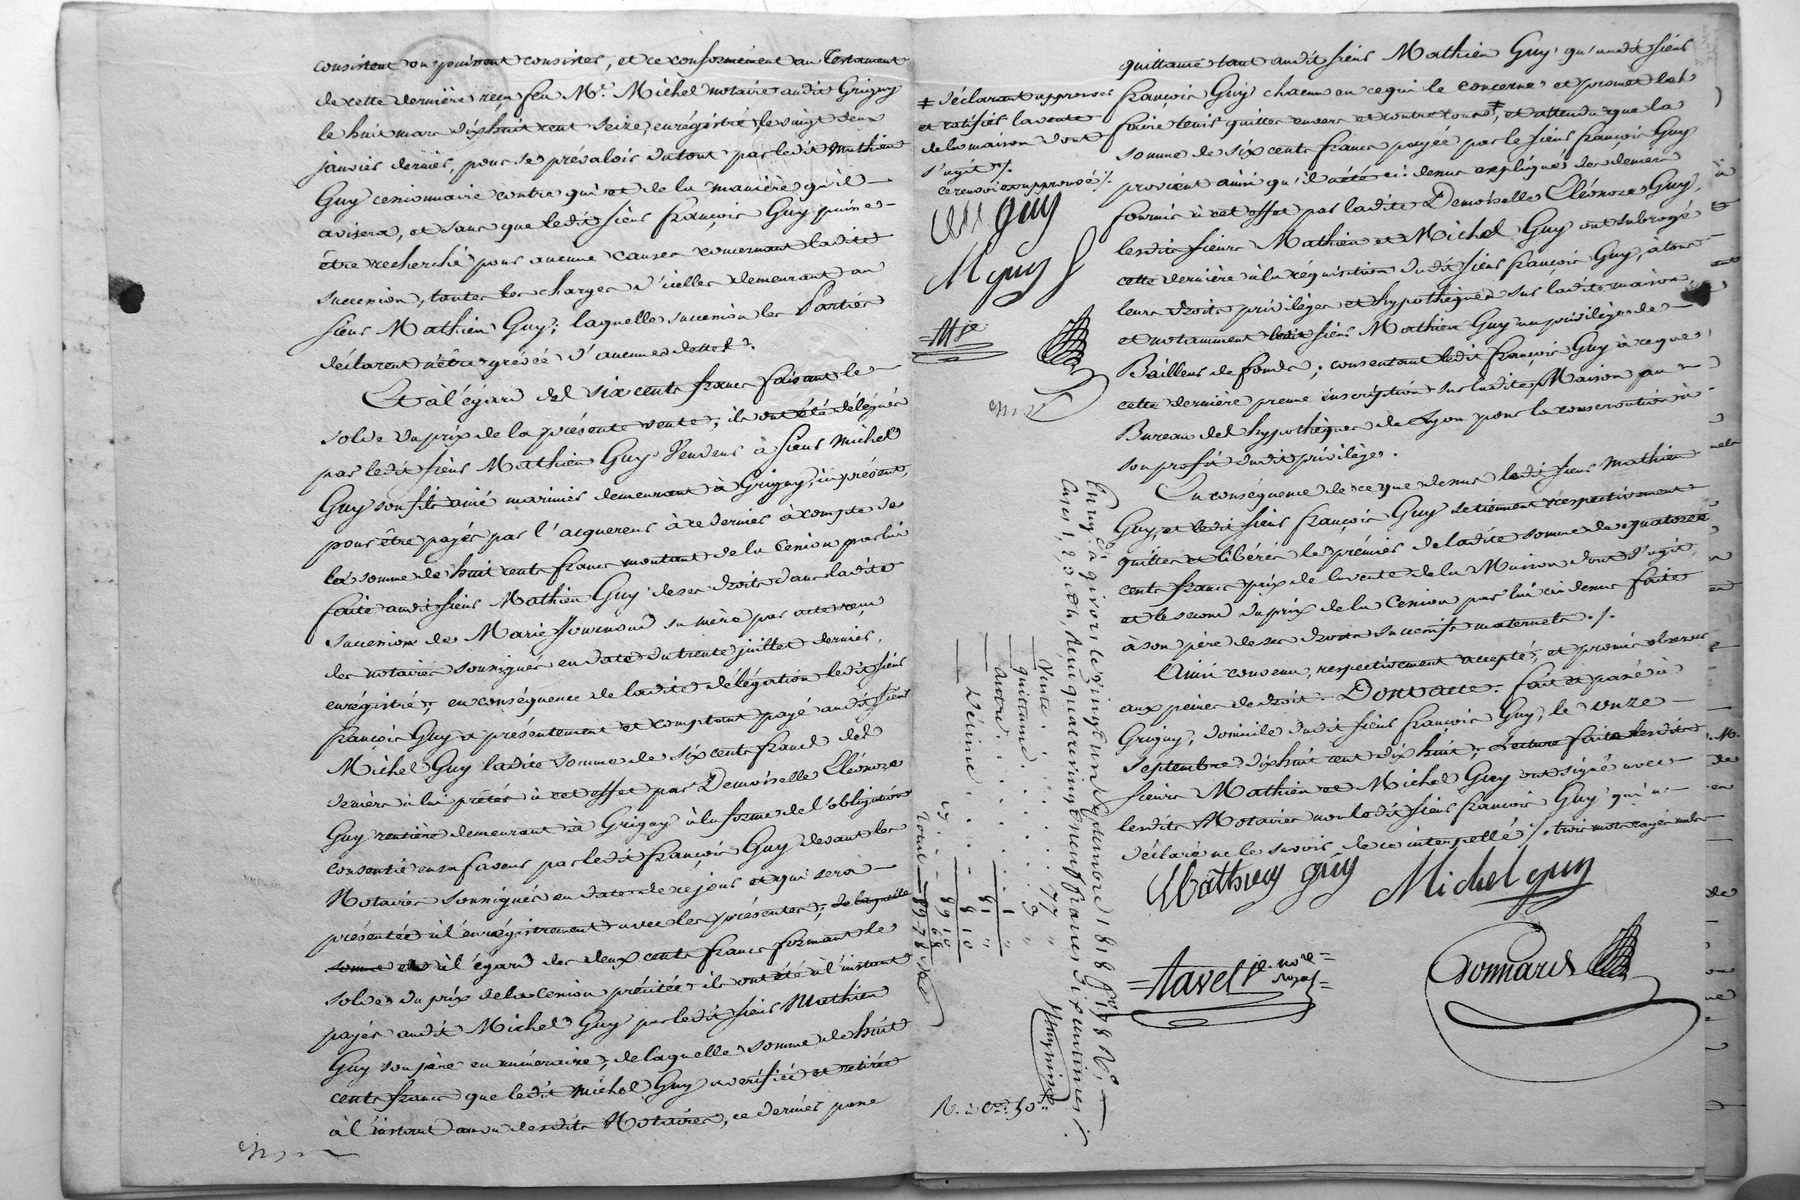 consistent ou puissent consister, et ce conformément au testament
de cette dernière reçu feu Me. Michel notaire audit Grigny
le huit mars dix huit cent seize, enrégistré le vingt deux
janvier dernier, pour se prévaloir du tout par ledit Mathieu
Guy cessionnaire contre qui et de la manière qu'il
avisera, et sans que ledit sieur françois Guy puisse
être recherché pour aucunes causes concernant ladite
succession, toutes les charges d'icelles demeurant au
sieur Mathieu Guy; laquelle succession les Parties
déclarent n'être grévée d'aucunes dettes.
Et à l'égard des six cents francs faisant le
solde du prix de la présente vente, ils ont été délégués
par ledit sieur Mathieu Guy Vendeur à sieur Michel
Guy son fils ainé marinier demeurant à Grigny, ici présent,
pour être payés par l'acquereur à ce dernier à compte de
la somme de huit cents francs montant de la Cession par lui
faite audit sieur Mathieu Guy de ses droits dans ladite
succession de Marie Journoud sa mère par acte reçu
des notaires soussignés en date du trente juillet dernier,
enrégistré; en conséquence de ladite délégation ledit sieur
françois Guy a présentement et comptant payé audit sieur
Michel Guy ladite somme de six cents francs des
deniers à lui prêtés à cet effet par Demoiselle Eléonore
Guy rentière demeurant à Grigny à la forme de l'obligation
consentie en sa faveur par ledit françois Guy devant les
Notaires soussignés en date de ce jour et qui sera
présentée à l'enrégistrement avec les présentes; de laquelle
somme et à l'égard des deux cents francs formant le
solde du prix de la Cession précitée ils ont été à l'instant
payés audit Michel Guy par ledit sieur Mathieu
Guy son père en numéraire; de laquelle somme de huit
cents francs que ledit Michel Guy a vérifiée et retirée
à l'instant au vu desdits Notaires, ce dernier passe
quittance tant audit sieur Mathieu Guy qu'audit sieur
françois Guy chacun en ce qui le concerne et promet les
faire tenir quittes envers et contre tous ⧧, et attendu que la
somme de six cents francs payée par le sieur françois Guy
provient ainsi qu'il a été ci-dessus expliqué des deniers
fournis à cet effet par ladite Demoiselle Eléonore Guy,
lesdits sieurs Mathieu et Michel Guy ont subrogé
cette dernière à la réquisition dudit sieur françois Guy, à tous
leurs droits priviléges et hypothèques sur ladite maison,
et notamment ledit sieur Mathieu Guy au privilége de
Bailleur de fonds; consentant ledit françois Guy à ce que
cette dernière prenne inscription sur ladite Maison au
Bureau des hypothèques de Lyon pour la conservation à
son profit dudit privilége.
En conséquence de ce que dessus ledit sieur Mathieu
Guy, et ledit sieur françois Guy se tiennent respectivement
quittes et libérés le premier de ladite somme de quatorze
cents francs prix de la vente de la Maison dont s'agit,
et le second du prix de la Cession par lui ci dessus faite
à son père de ses droits successifs maternels ./.
Ainsi convenu, respectivement accepté, et promis observer
aux peines de droit. Dont acte. fait et passé à
Grigny, domicile dudit sieur françois Guy, le onze
Septembre dix huit cent dix huit. Lecture faite lesdits
sieurs Mathieu et Michel Guy ont signé avec
lesdits Notaires non ledit sieur françois Guy qui a
déclaré ne le savoir de ce interpellé ./. trois mots rayés nuls
Mathieu guy Michel guy
Tavel je. nore. royal
Bonnard
⧧ déclarant approuver
et ratifier la vente
de la maison dont
s'agit ./.
ce renvoi est approuvé ./.
guy
M guy
Enregé. à givors le vingt un Septembre 1818 fo. 178 Vo.
Cases 1, 2, 3 et 4, Reçu quatre vingt neuf francs dix centimes.
Vente . . . . 77 "
quittance . . . 3 "
autre . . . 1 "
81 "
Décime . . 8 10
89 10
cy . . 68
Total 89-78